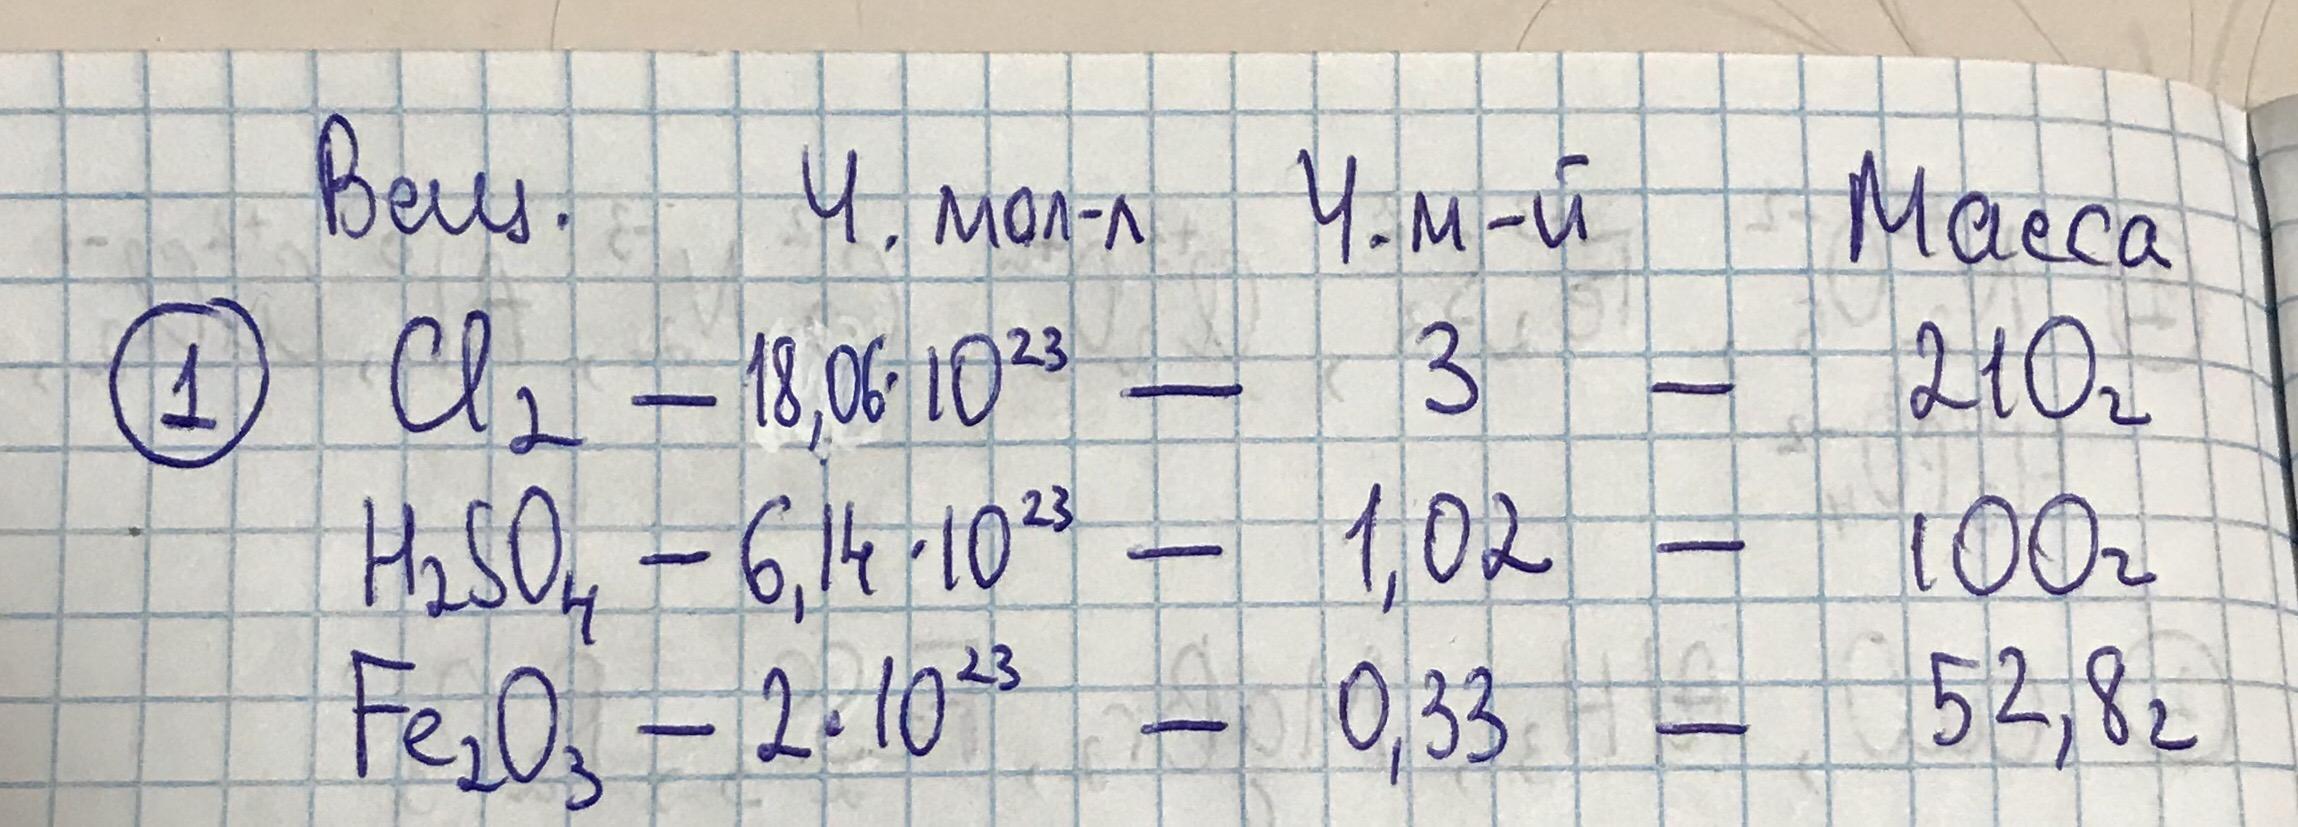 Вещ. Ч. мол-л Ч. м-й Масса
① Cl₂ – 18,06·10²³ — 3 – 210г
H₂SO₄ – 6,14·10²³ – 1,02 – 100г
Fe₂O₃ – 2·10²³ – 0,33 – 52,8г